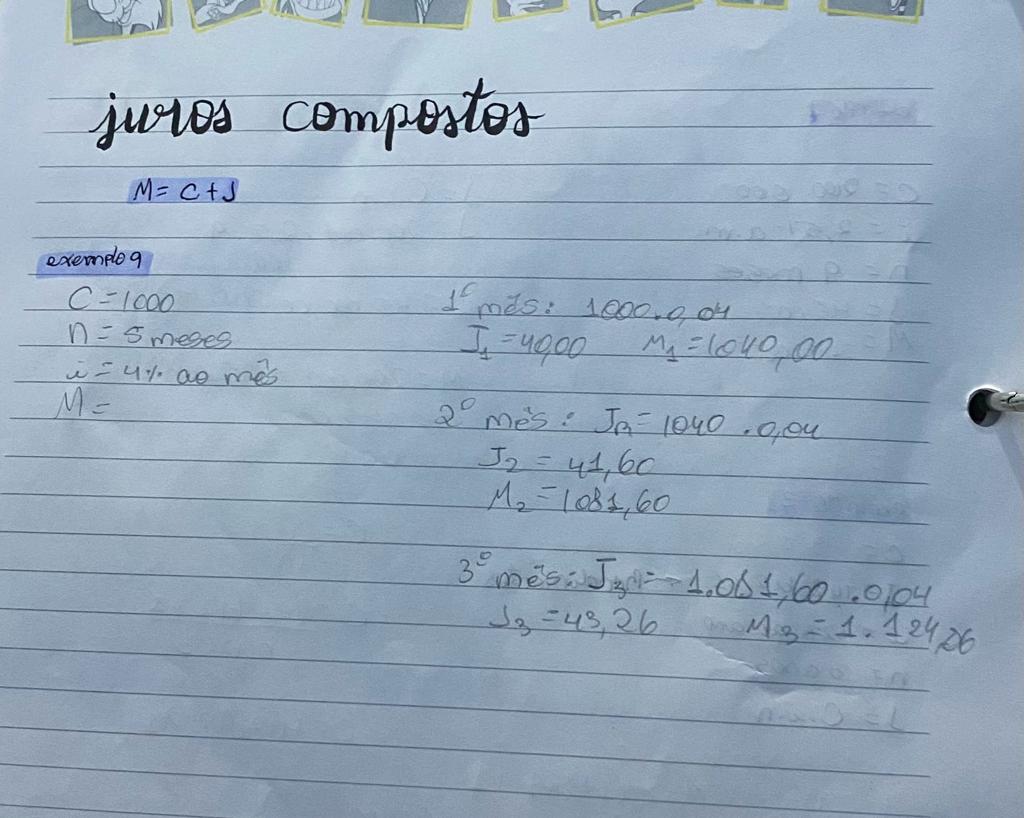 juros compostos
M = C + J
exemplo 9
C = 1000
n = 5 meses
i = 4% ao mês
M =
1º mês: 1000.0,04
J1 = 40,00 M1 = 1040,00
2º mês: J2 = 1040 .0,04
J2 = 41,60
M2 = 1081,60
3º mês: J3 = 1.081,60 .0,04
J3 = 43,26 M3 = 1.124,26